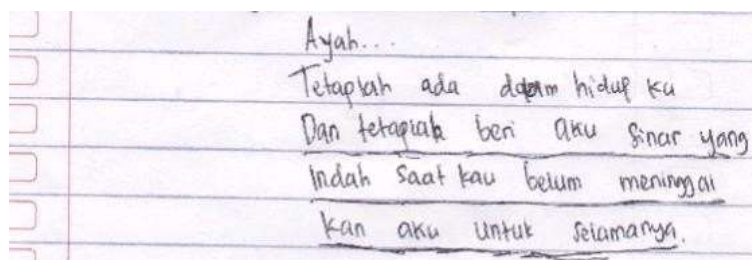 Ayah...
Tetaplah ada dalam hidup ku
Dan tetaplah beri aku sinar yang
indah saat kau belum meninggal
kan aku untuk selamanya.